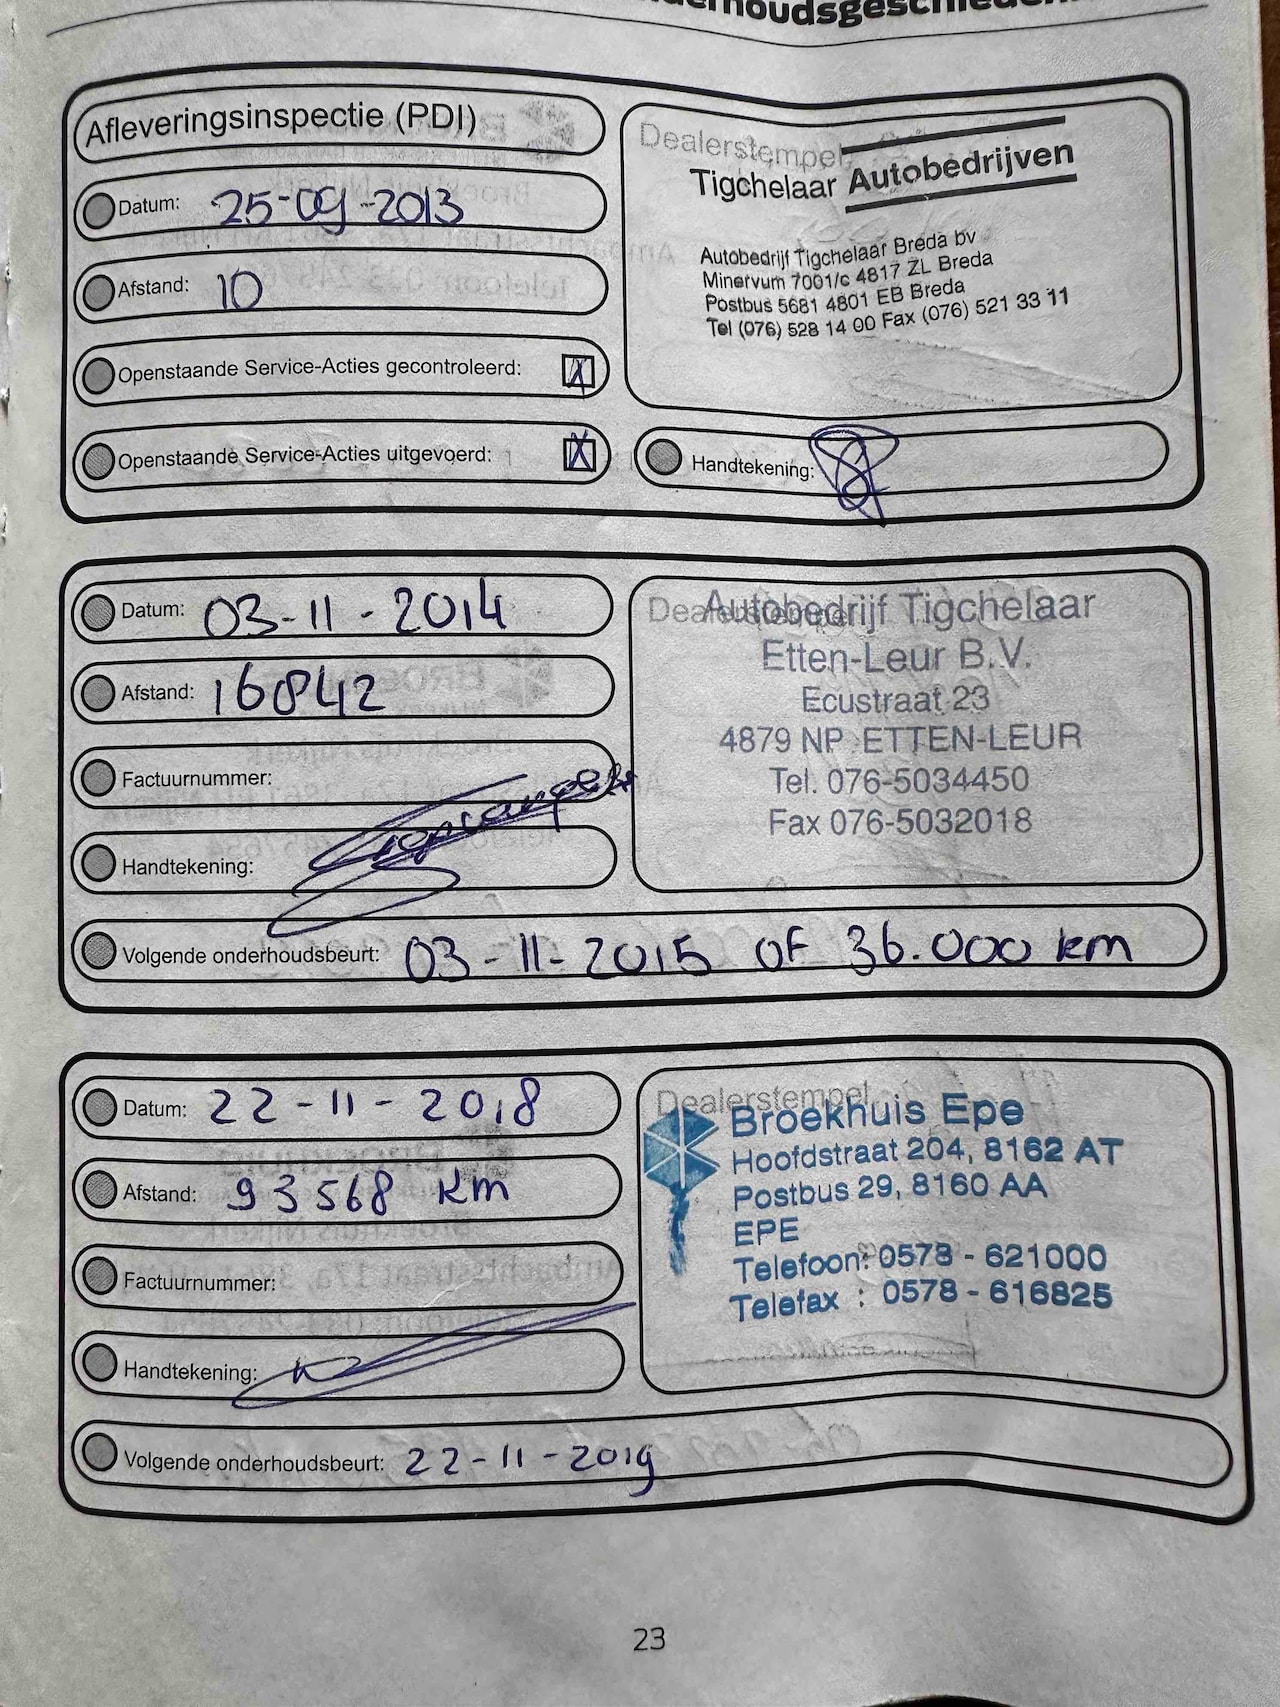 Afleveringsinspectie (PDI)
Datum: 25-09-2013
Afstand: 10
Openstaande Service-Acties gecontroleerd: X
Openstaande Service-Acties uitgevoerd: X
Dealerstempel
Tigchelaar Autobedrijven
Autobedrijf Tigchelaar Breda bv
Minervum 7001/c 4817 ZL Breda
Postbus 5681 4801 EB Breda
Tel (076) 528 14 00 Fax (076) 521 33 11
Handtekening:
Datum: 03-11-2014
Afstand: 16842
Factuurnummer:
Handtekening:
Dealerstempel
Autobedrijf Tigchelaar
Etten-Leur B.V.
Ecustraat 23
4879 NP ETTEN-LEUR
Tel. 076-5034450
Fax 076-5032018
Volgende onderhoudsbeurt: 03-11-2015 OF 36.000 km
Datum: 22-11-2018
Afstand: 93568 km
Factuurnummer:
Handtekening:
Dealerstempel
Broekhuis Epe
Hoofdstraat 204, 8162 AT
Postbus 29, 8160 AA
EPE
Telefoon: 0578 - 621000
Telefax : 0578 - 616825
Volgende onderhoudsbeurt: 22-11-2019
23